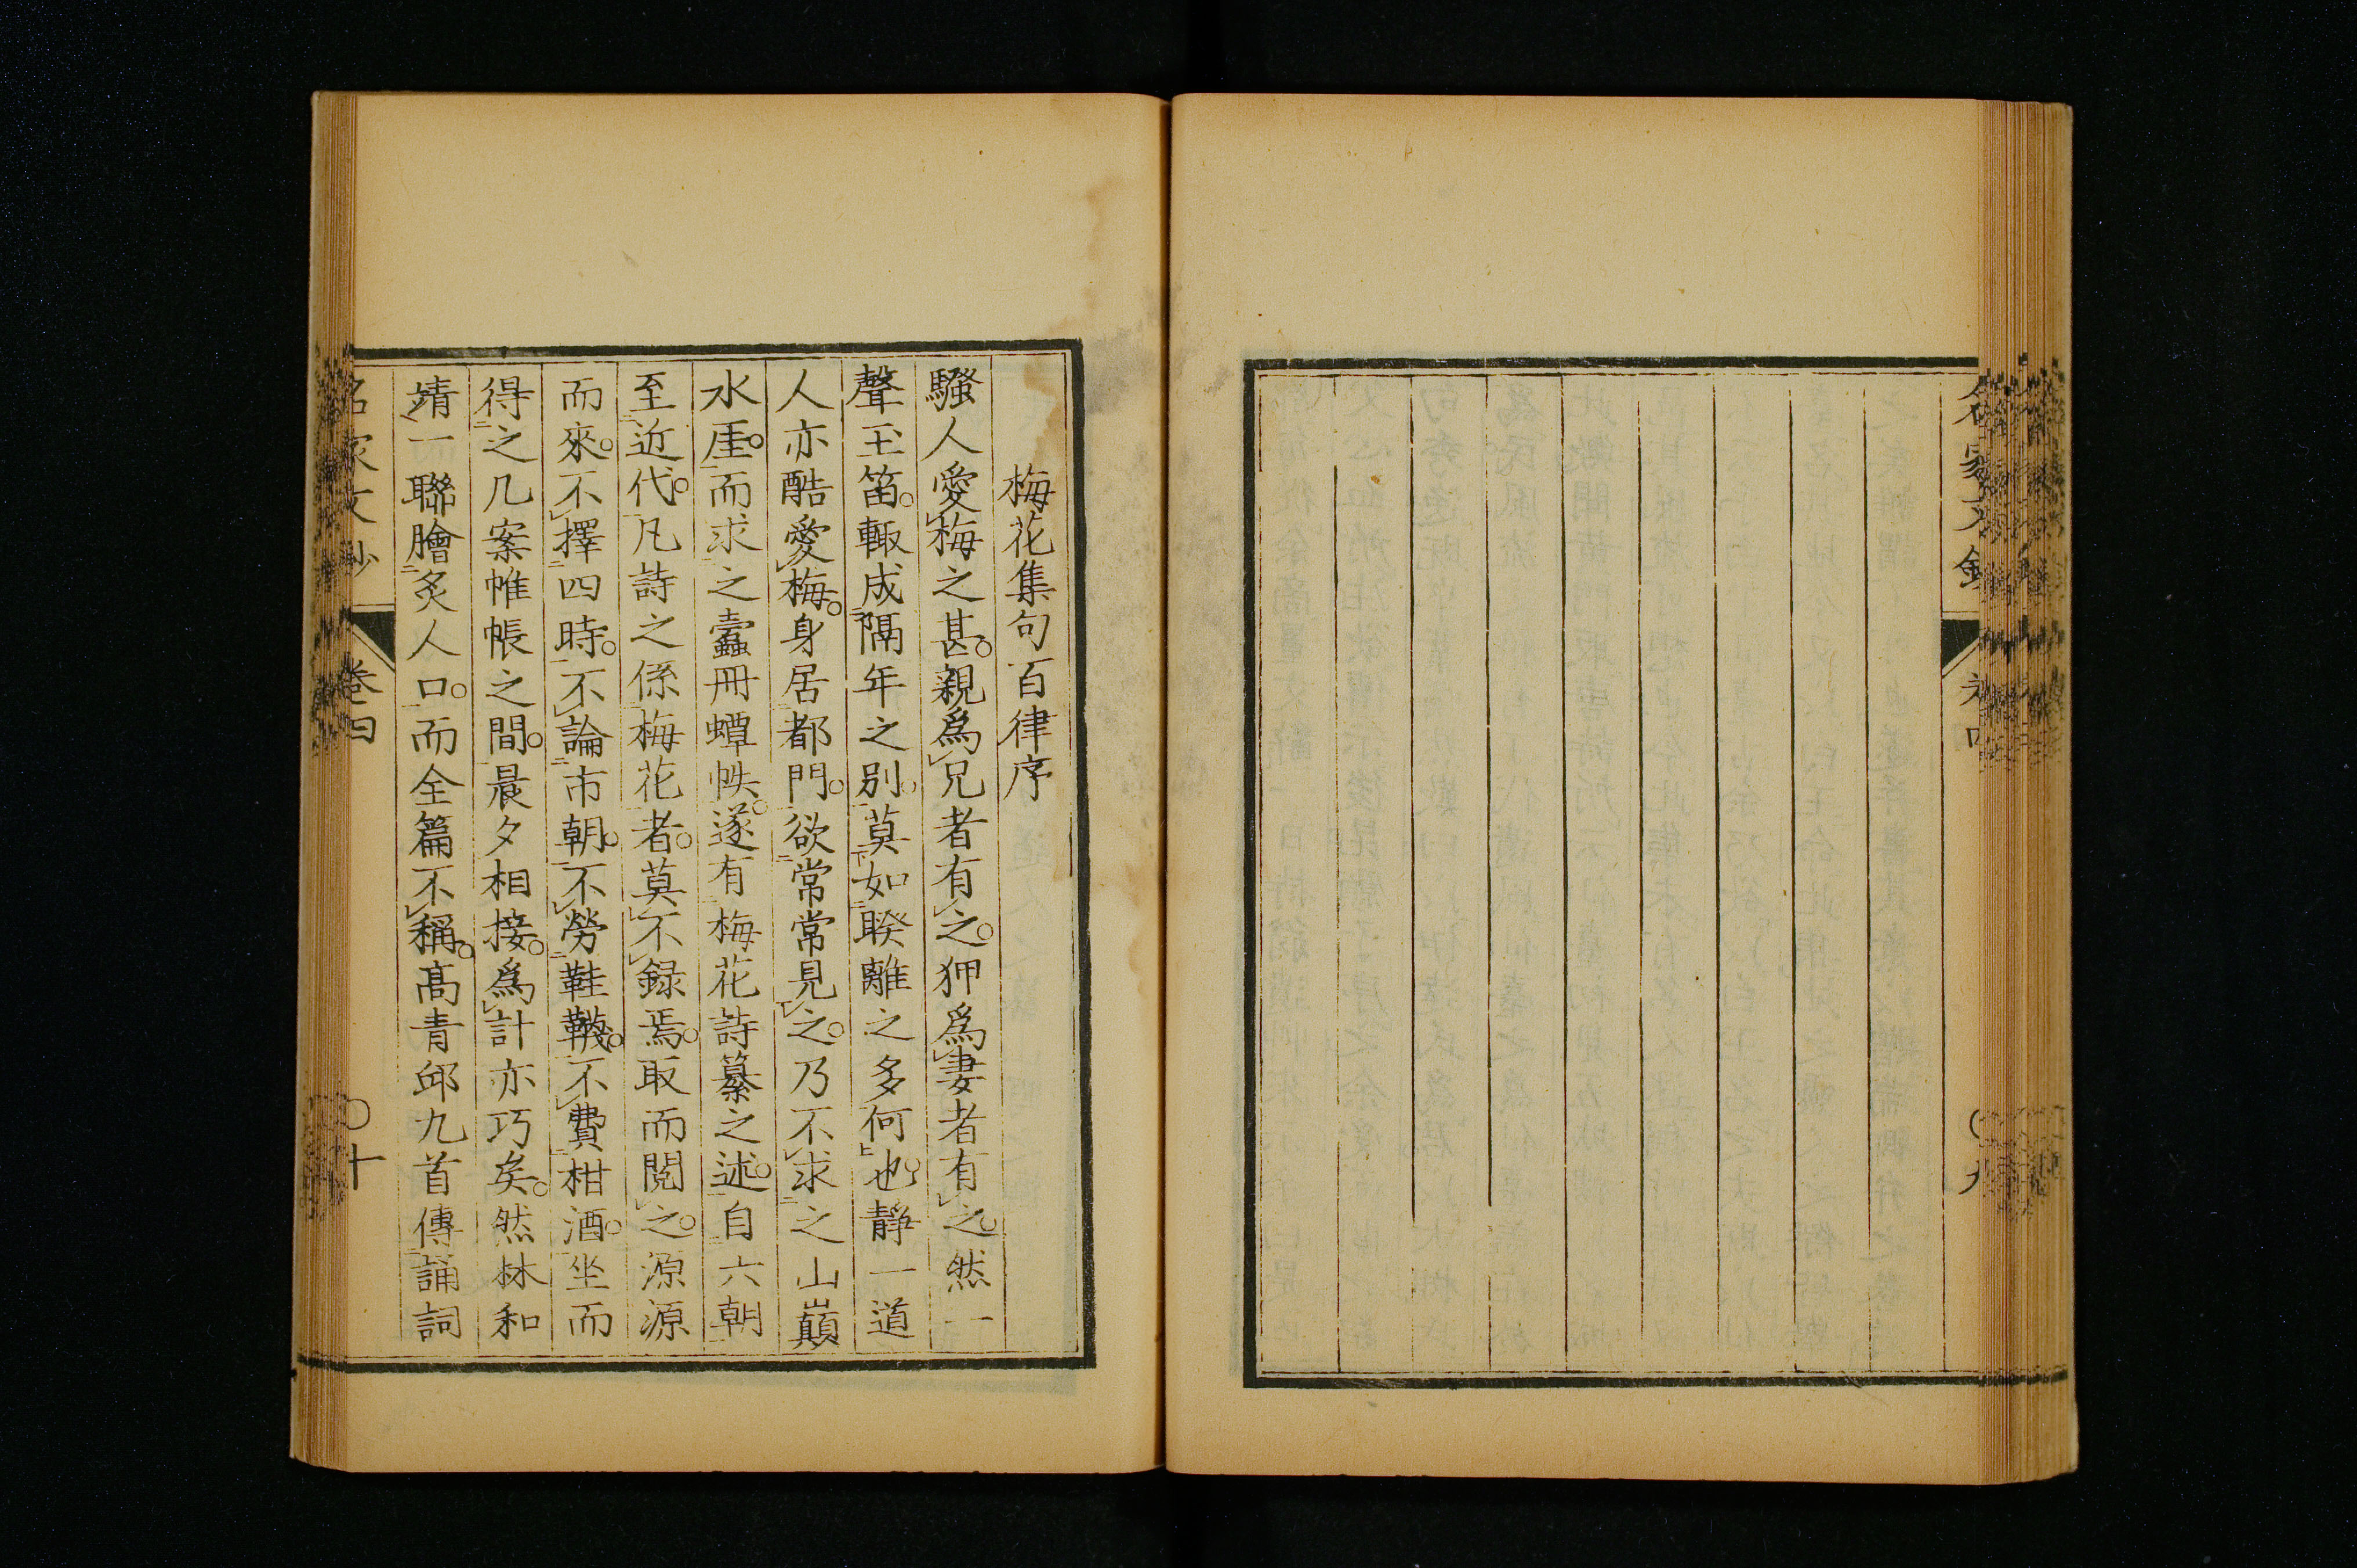 名家文鈔
卷四
九
梅花集句百律序
騷人愛梅之甚。親爲兄者有之。狎爲妻者有之。然一
聲玉笛。輙成隔年之別。莫如睽離之多何也。靜一道
人亦酷愛梅。身居都門。欲常常見之。乃不求之山巔
水厓。而求之蠹冊蟫帙。遂有梅花詩纂之述。自六朝
至近代。凡詩之係梅花者。莫不録焉。取而閱之。源源
而來。不擇四時。不論市朝。不勞鞋韈。不費柑酒。坐而
得之几案帷帳之間。晨夕相接。爲計亦巧矣。然林和
靖一聯膾炙人口。而全篇不稱。高青邱九首傳誦詞
名家文鈔
卷四
十